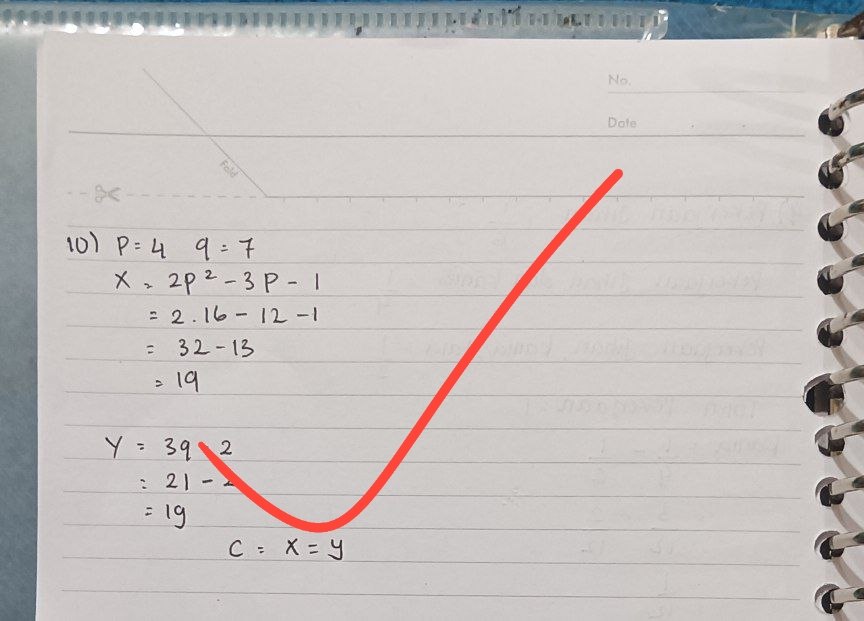 No.
Date
Fold
10) P = 4 q = 7
X = 2P² - 3P - 1
= 2.16 - 12 - 1
= 32 - 13
= 19
Y = 3q - 2
= 21 - 2
= 19
C = X = Y